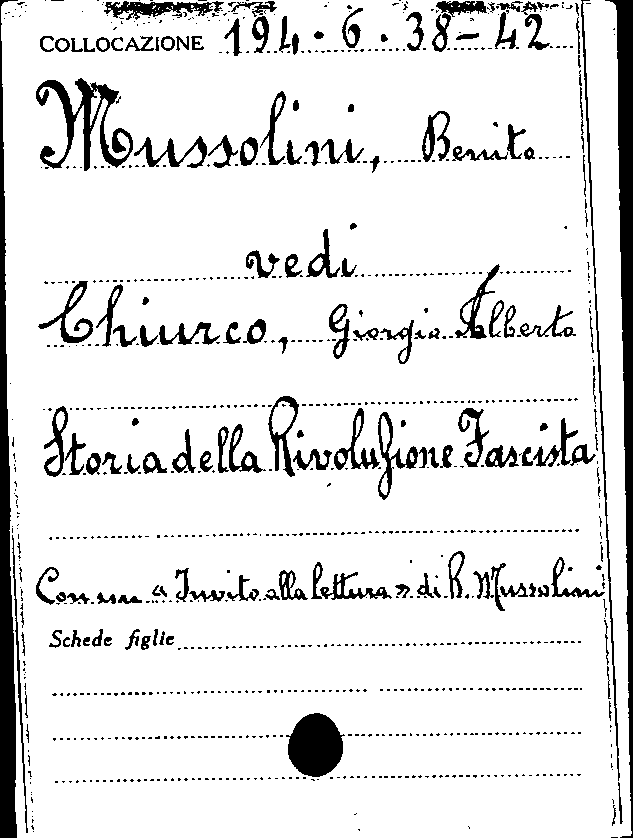 COLLOCAZIONE 194.6.38-42
Mussolini, Benito
vedi
Chiurco, Giorgio Alberto
Storia della Rivoluzione Fascista
Con un "Invito alla lettura" di B. Mussolini
Schede figlie